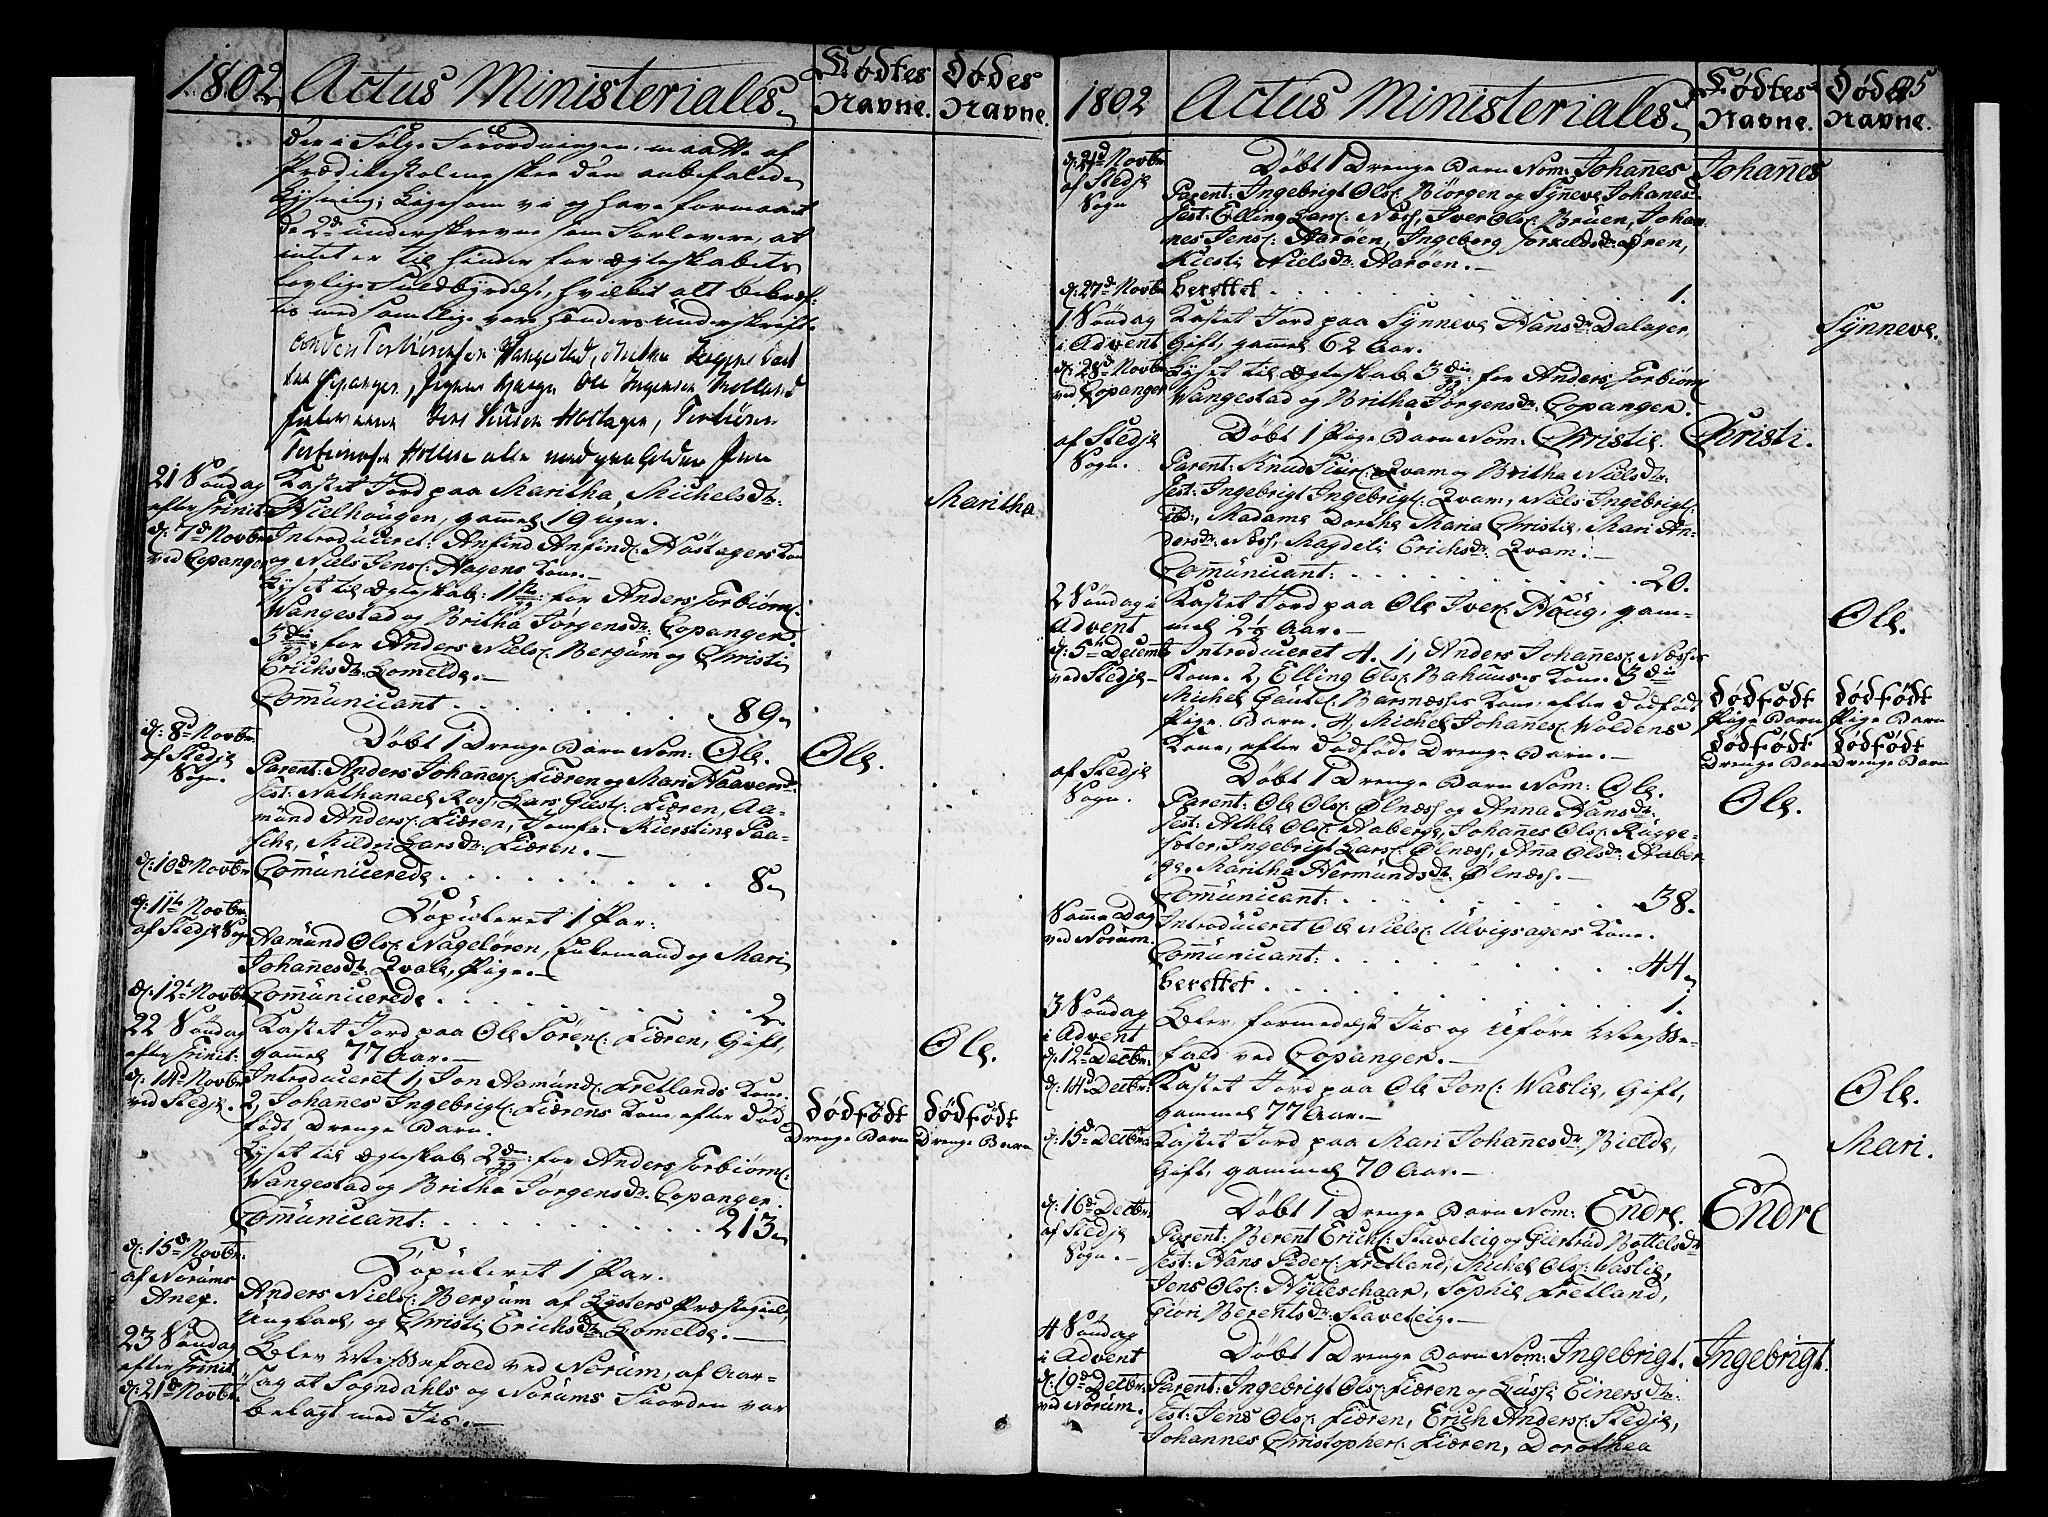 1802
Actus Ministeriales
Fødtes Navne.
Dødes Navne.
der i Følge Forordningen, maatte af
Prædikestolene skee den anbefalede
Lysning; Ligesom vi og have formaaet
de 2de underskrevne som Forlovere, at
intet er til Hinder for Ægteskabets
lovlige Fuldbyrdelse, hvilket alt bekræf-
tes med samtlige vore Hænders Underskrift
21 Søndag
efter Trinit:
d: 7de Novbr
ved Copanger
Kastet Jord paa Maritha Michelsdr:
Nielhougen, gammel 19 Uger.
Maritha
Introduceret: Anfind Anfinds: Hostagers Kone
og Niels Jens: Hagens Kone.
Lyset til Ægteskab: 1ste for Anders Torbiørns:
Wangestad og Britha Jørgensdr: Copanger.
3die for Anders Niels: Bergum og Christi
Erichsdr: Lomelde.
Communicant 89
d: 8de Novbr
af Stedje Sogn.
Døbt 1 Drenge Barn Nom: Ole.
Ole.
Parent: Anders Johannes: Fiæren og Mari Haaversdr
Test: Nathanael Ross, Lars Giest: Fiæren, Aa-
mund Anders: Fiæren, Jomfr: Kierstine Paa-
sche, Mildri Larsdr: Fiæren.
d: 10de Novbr
Communicerede 8
d: 11te Novbr.
af Stedje Sogn
Copuleret 1 Par:
Aamund Ols: Nageløren, Enkemand og Mari
Johannesdr: Qvale, Pige.
d: 12te Novbr
Communicerede 2.
22 Søndag
efter Trinit:
d: 14de Novbr
ved Stedje.
Kastet Jord paa Ole Sørens: Fiæren, Gift,
gammel 77 Aar.
Ole.
Introduceret 1, Jon Aamunds: Fretlands Kone.
2, Johannes Ingebrigts: Fiærens Kone, efter Død-
født Drenge Barn.
Dødfødt
Drenge Barn
Dødfødt
Drenge Barn
Lyset til Ægteskab 2den for Anders Torbiørns:
Wangestad og Britha Jørgensdr: Copanger.
Communicant: 213
d: 15de Novbr:
af Norums
Anex.
Copuleret 1 Par.
Anders Niels: Bergum af Lysters Præstegield,
Ungkarl, og Christi Erichsdr: Lomelde.
23 Søndag
efter Trinit.
d: 21de Novbr.
Blev Messefald ved Norum, af Aar-
sag at Sogndahls og Norums Fiorden var
belagt med Iis.
1802
Actus Ministeriales
Fødtes Navne.
Dødes Navne.
85
d: 21de Novbr
af Stedje
Sogn
Døbt 1 Drenge Barn Nom: Johannes
Johannes
Parent: Ingebrigt Ols: Biørgen og Synneve Johanesd
Test: Elling Lars: Næss, Iver Ols: Bruen, Johan-
nes Jens: Aarøen, Ingeborg Torkildsdr: Øren,
Kiesti Nielsdr: Aarøen.
d: 27de Novbr
Berettet 1.
1 Søndag
i Advent
d: 28de Novbr
ved Copanger
Kastet Jord paa Synneve Hansdr: Dalager,
Gift, gammel 62 Aar.
Synneve.
Lyset til Ægteskab 3die for Anders Torbiørns
Wangestad og Britha Jørgensdr: Copanger.
af Stedje
Sogn.
Døbt 1 Pige Barn Nom: Christie.
Christi.
Parent: Knud Siur: Qvam og Britha Nielsdr:
Test: Ingebrigt Ingebrigts: Qvam, Niels Ingebrigts:
ib:, Madame Dorthe Maria Christie, Mari An-
dersdr: Næss, Magdeli Erichsdr: Qvam.
Communicant: 20.
2 Søndag i
Advent
d: 5te Decembr
ved Stedje
Kastet Jord paa Ole Ivers: Haug, gam-
mel 2½ Aar.
Ole.
Introduceret 4. 1, Anders Johannes: Næsses
Kone. 2, Elling Ols: Bahuuses Kone. 3die
Michel Gautes: Barsnæsses Kone, efter Dødfød
Pige Barn. 4. Michel Johannes: Woldens
Kone, efter Dødfødt Drenge Barn.
Dødfødt
Pige Barn
Dødfødt
Drenge Barn
Dødfødt
Pige Barn
Dødfødt
Drenge Barn
af Stedje
Sogn.
Døbt 1 Drenge Barn Nom: Ole.
Ole.
Parent: Ole Ols: Ølnæss og Anna Hansdr:
Test: Athle Ols: Aaberge, Johannes Ols: Rugge-
sæter, Ingebrigt Lars: Ølnæss, Anna Olsdr: Aaber-
ge, Maritha Hermundsdr: Ølnæss.
Communicant: 38.
Samme Dag
ved Norum.
Introduceret Ole Niels: Ulvigsagers Kone.
Communicant: 44
Berettet 1.
3 Søndag
i Advent
d: 12te Decbr.
Blev formedelst Iis og Uføre Messe-
fald ved Copanger.
d: 14de Decbr:
Kastet Jord paa Ole Jons: Waslie, Gift,
gammel 77 Aar.
Ole.
d: 15de Decbr:
Kastet Jord paa Mari Johannesdr: Bielde,
Gift, gammel 70 Aar.
Mari.
d: 16de Decbr.
af Stedje
Sogn.
Døbt 1 Drenge Barn Nom: Endre.
Endre
Parent: Berent Erich: Staveteig og Giertrud Bottelsdr
Test: Hans Peder: Fretland, Michel Ols: Waslie,
Jens Ols: Nytteschaar, Sophie Fretland,
Giøri Berentsdr: Staveteig.
4 Søndag
i Advent
d: 19de Decbr.
ved Norum.
Døbt 1 Drenge Barn Nom: Ingebrigt.
Ingebrigt.
Parent: Ingebrigt Ols: Fiæren og Lussi Einersdr:
Test: Jens Ols: Fiæren, Erich Anders: Stedje,
Johannes Christophers: Fiæren, Dorothea